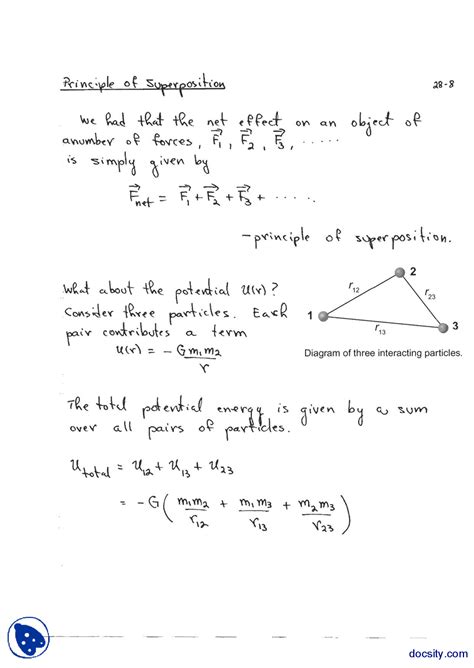 Principle of Superposition 28-8
We had that the net effect on an object of
anumber of forces, F⃗₁, F⃗₂, F⃗₃, .....
is simply given by
F⃗net = F⃗₁ + F⃗₂ + F⃗₃ + .....
- principle of superposition.
What about the potential U(r)?
Consider three particles. Each
pair contributes a term
U(r) = - Gm₁m₂/r
1
2
3
r₁₂
r₂₃
r₁₃
Diagram of three interacting particles.
The total potential energy is given by a sum
over all pairs of particles.
Utotal = U₁₂ + U₁₃ + U₂₃
= -G( m₁m₂/r₁₂ + m₁m₃/r₁₃ + m₂m₃/r₂₃ )
docsity.com